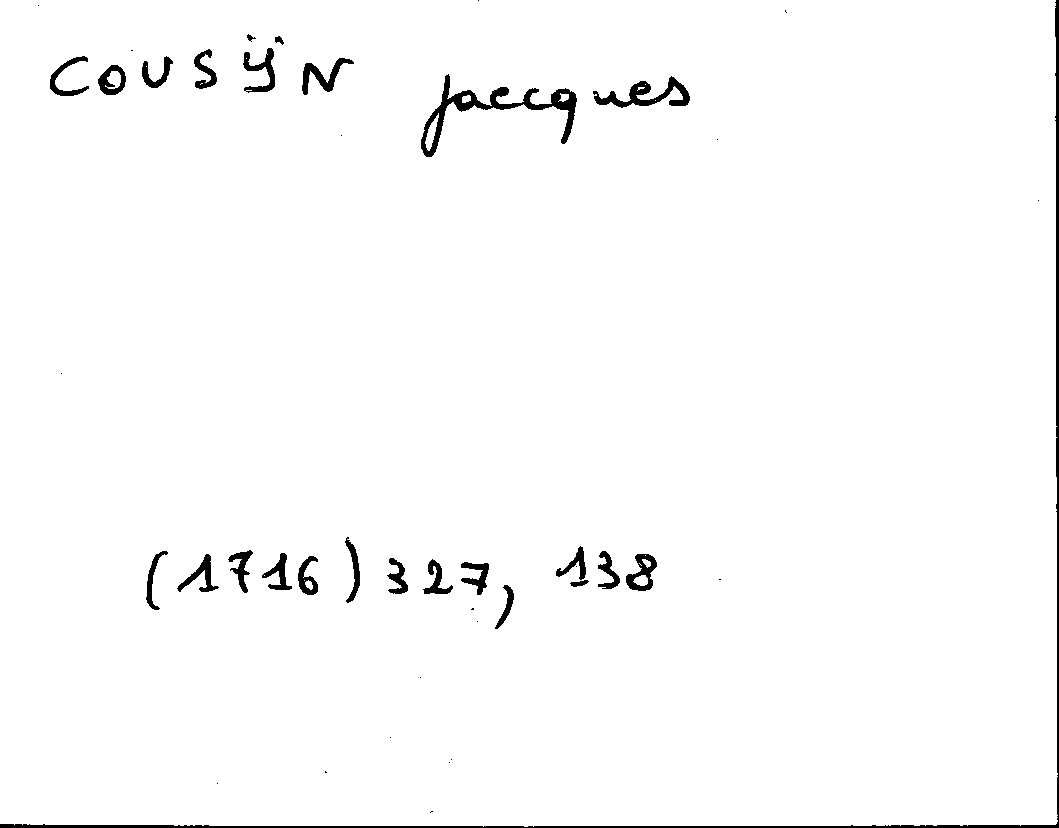 COUSŸN jaccques
(1716) 327, 138